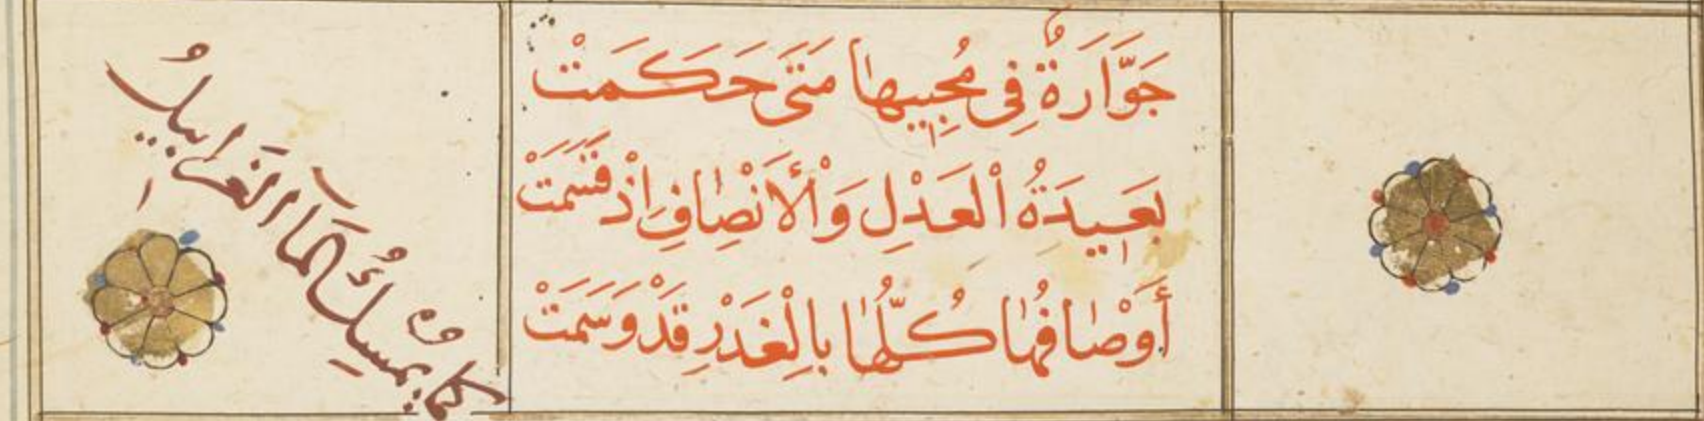 جَوَّارَةٌ فِى مُحِبِيهَا مَتَى حَكَمَتْ
بَعِيدَةُ الْعَدْلِ وَالْأَنْصَافِ اِذْ قَسَمَتْ
أَوْصَافُهَا كُلُّهَا بِالْغَدْرِ قَدْ وَسَمَتْ
كما يمسك المآ الغرابيلُ